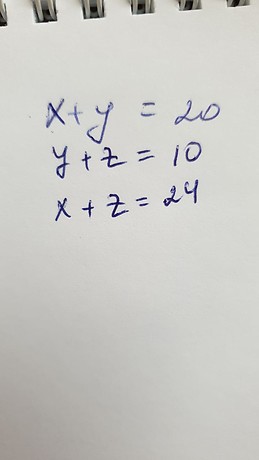 x + y = 20
y + z = 10
x + z = 24